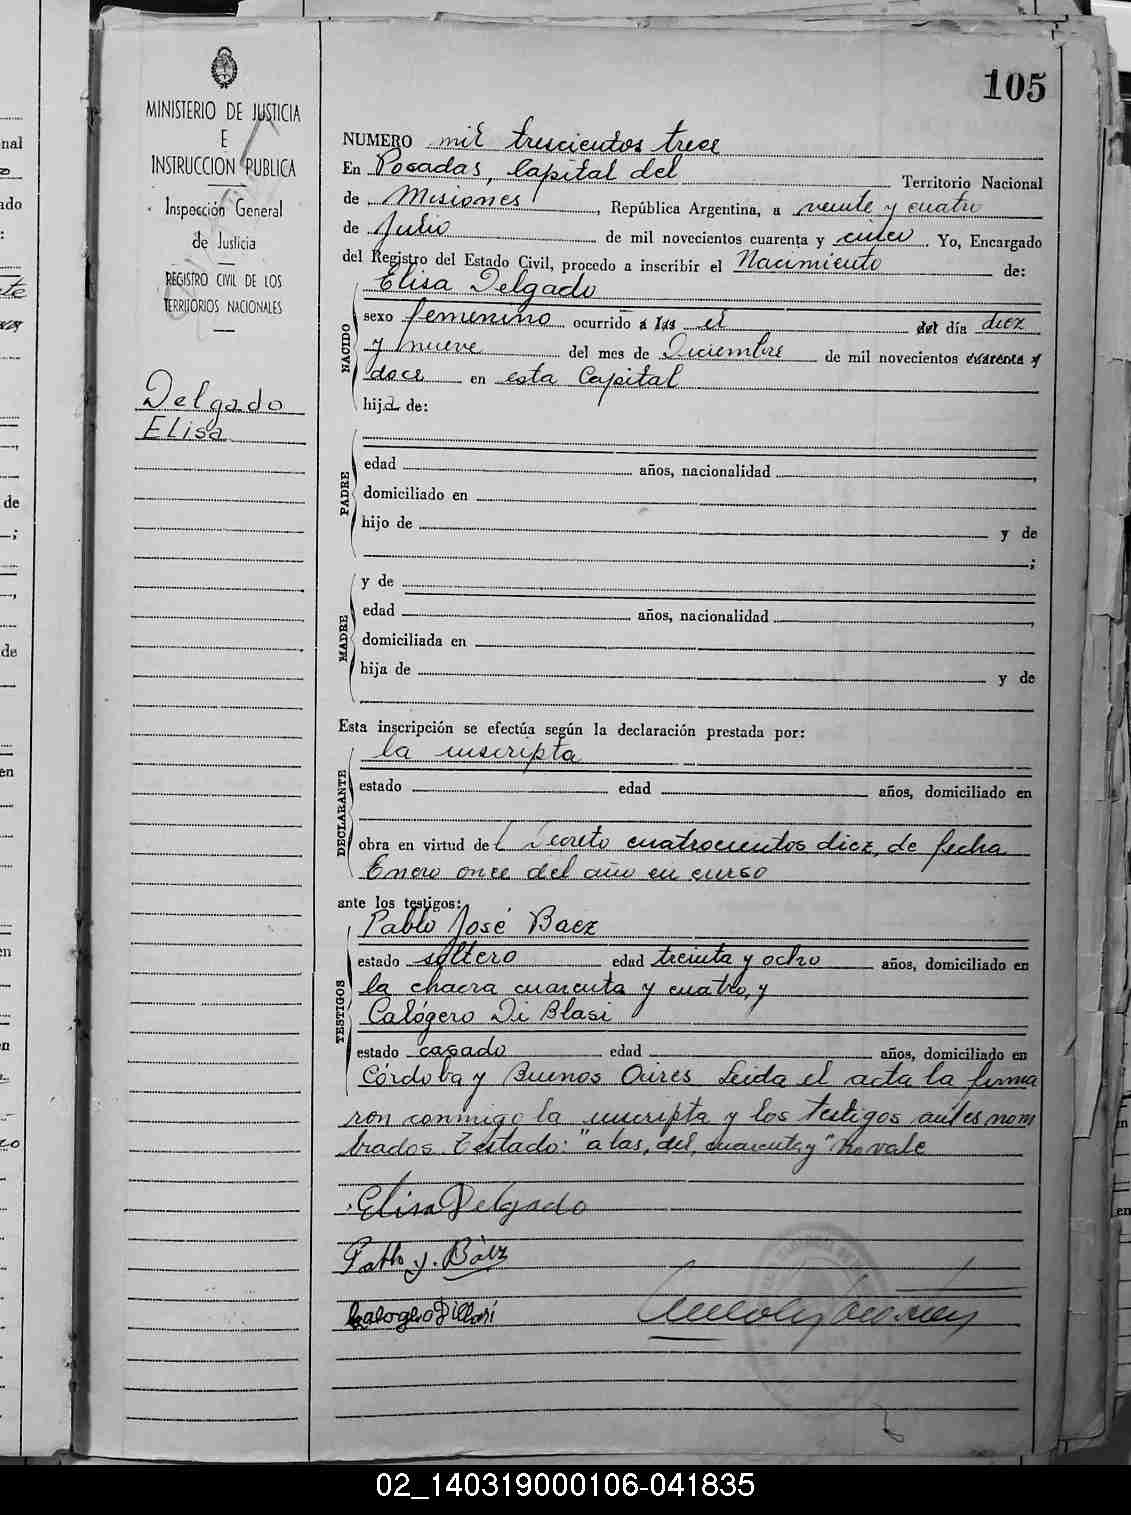 105
MINISTERIO DE JUSTICIA
E
INSTRUCCION PUBLICA
Inspección General
de Justicia
REGISTRO CIVIL DE LOS
TERRITORIOS NACIONALES
Delgado
Elisa
NUMERO mil trescientos trece
En Posadas, Capital del Territorio Nacional
de Misiones, República Argentina, a veinte y cuatro
de Julio de mil novecientos cuarenta y cinco. Yo, Encargado
del Registro del Estado Civil, procedo a inscribir el Nacimiento de:
NACIDO
Elisa Delgado
sexo femenino ocurrido a las el del día diez
y nueve del mes de Diciembre de mil novecientos cuarenta y
doce en esta Capital
hija de:
PADRE
edad años, nacionalidad ,
domiciliado en
hijo de y de
;
MADRE
y de
edad años, nacionalidad ,
domiciliada en
hija de y de
Esta inscripción se efectúa según la declaración prestada por:
DECLARANTE
la inscripta
estado edad años, domiciliado en
obra en virtud del Decreto cuatrocientos diez, de fecha
Enero once del año en curso
ante los testigos:
TESTIGOS
Pablo José Baez
estado soltero edad treinta y ocho años, domiciliado en
la chacra cuarenta y cuatro, y
Calógero Di Blasi
estado casado edad años, domiciliado en
Córdoba y Buenos Aires Leida el acta la firma
ron conmigo la inscripta y los testigos antes nom
brados. Testado: "a las, del, cuarenta y" no vale
Elisa Delgado
Pablo J. Báez
02_140319000106-041835